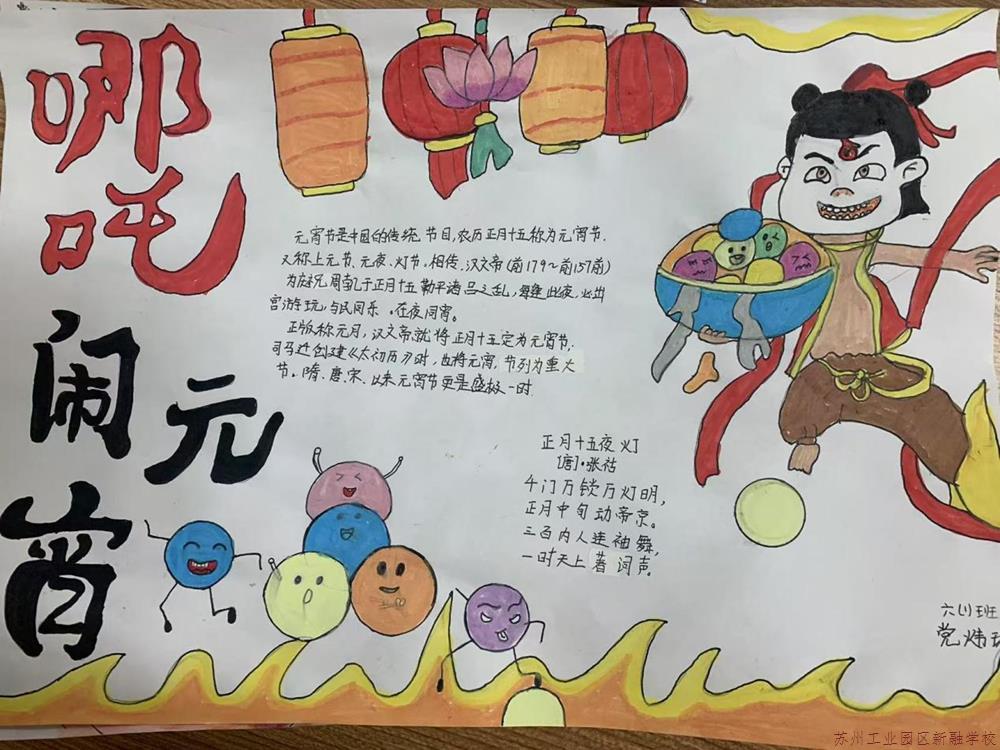 哪吒
闹元
宵
元宵节是中国的传统节目,农历正月十五称为元宵节.
又称上元节、元夜、灯节。相传,汉文帝(前179~前157前)
为庆祝周勃于正月十五勤平诸吕之乱,每逢此夜,必出
宫游玩,与民同乐.在夜同宵。
正版称元月,汉文帝就将正月十五定为元宵节,
司马迁创建《太初历》时,也将元宵节列为重大
节。隋、唐、宋、以来元宵节更是盛极一时.
正月十五夜灯
[唐]·张祜
千门万锁万灯明,
正月中旬动帝京。
三百内人连袖舞,
一时天上著词声.
六(1)班
党炜
苏州工业园区新融学校